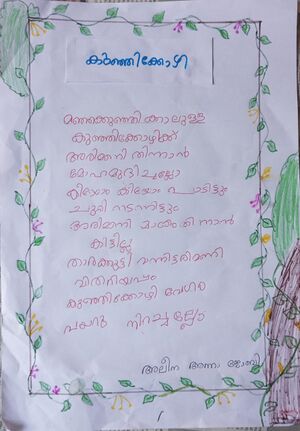 കുഞ്ഞിക്കോഴി
മഞ്ഞക്കുഞ്ഞിക്കാലുള്ള
കുഞ്ഞിക്കോഴിക്ക്
അരിമണി തിന്നാൻ
മോഹമുദിച്ചല്ലോ
കിയോം കിയോം പാടിട്ടും
ചുറ്റി നടന്നിട്ടും
അരിമണി മാത്രം തിന്നാൻ
കിട്ടില്ല
വന്നിട്ടരിമണി
വിതറിയപ്പം
കുഞ്ഞിക്കോഴി വേഗം
വയറു നിറച്ചല്ലോ
അലീന അന്ന ജോബി